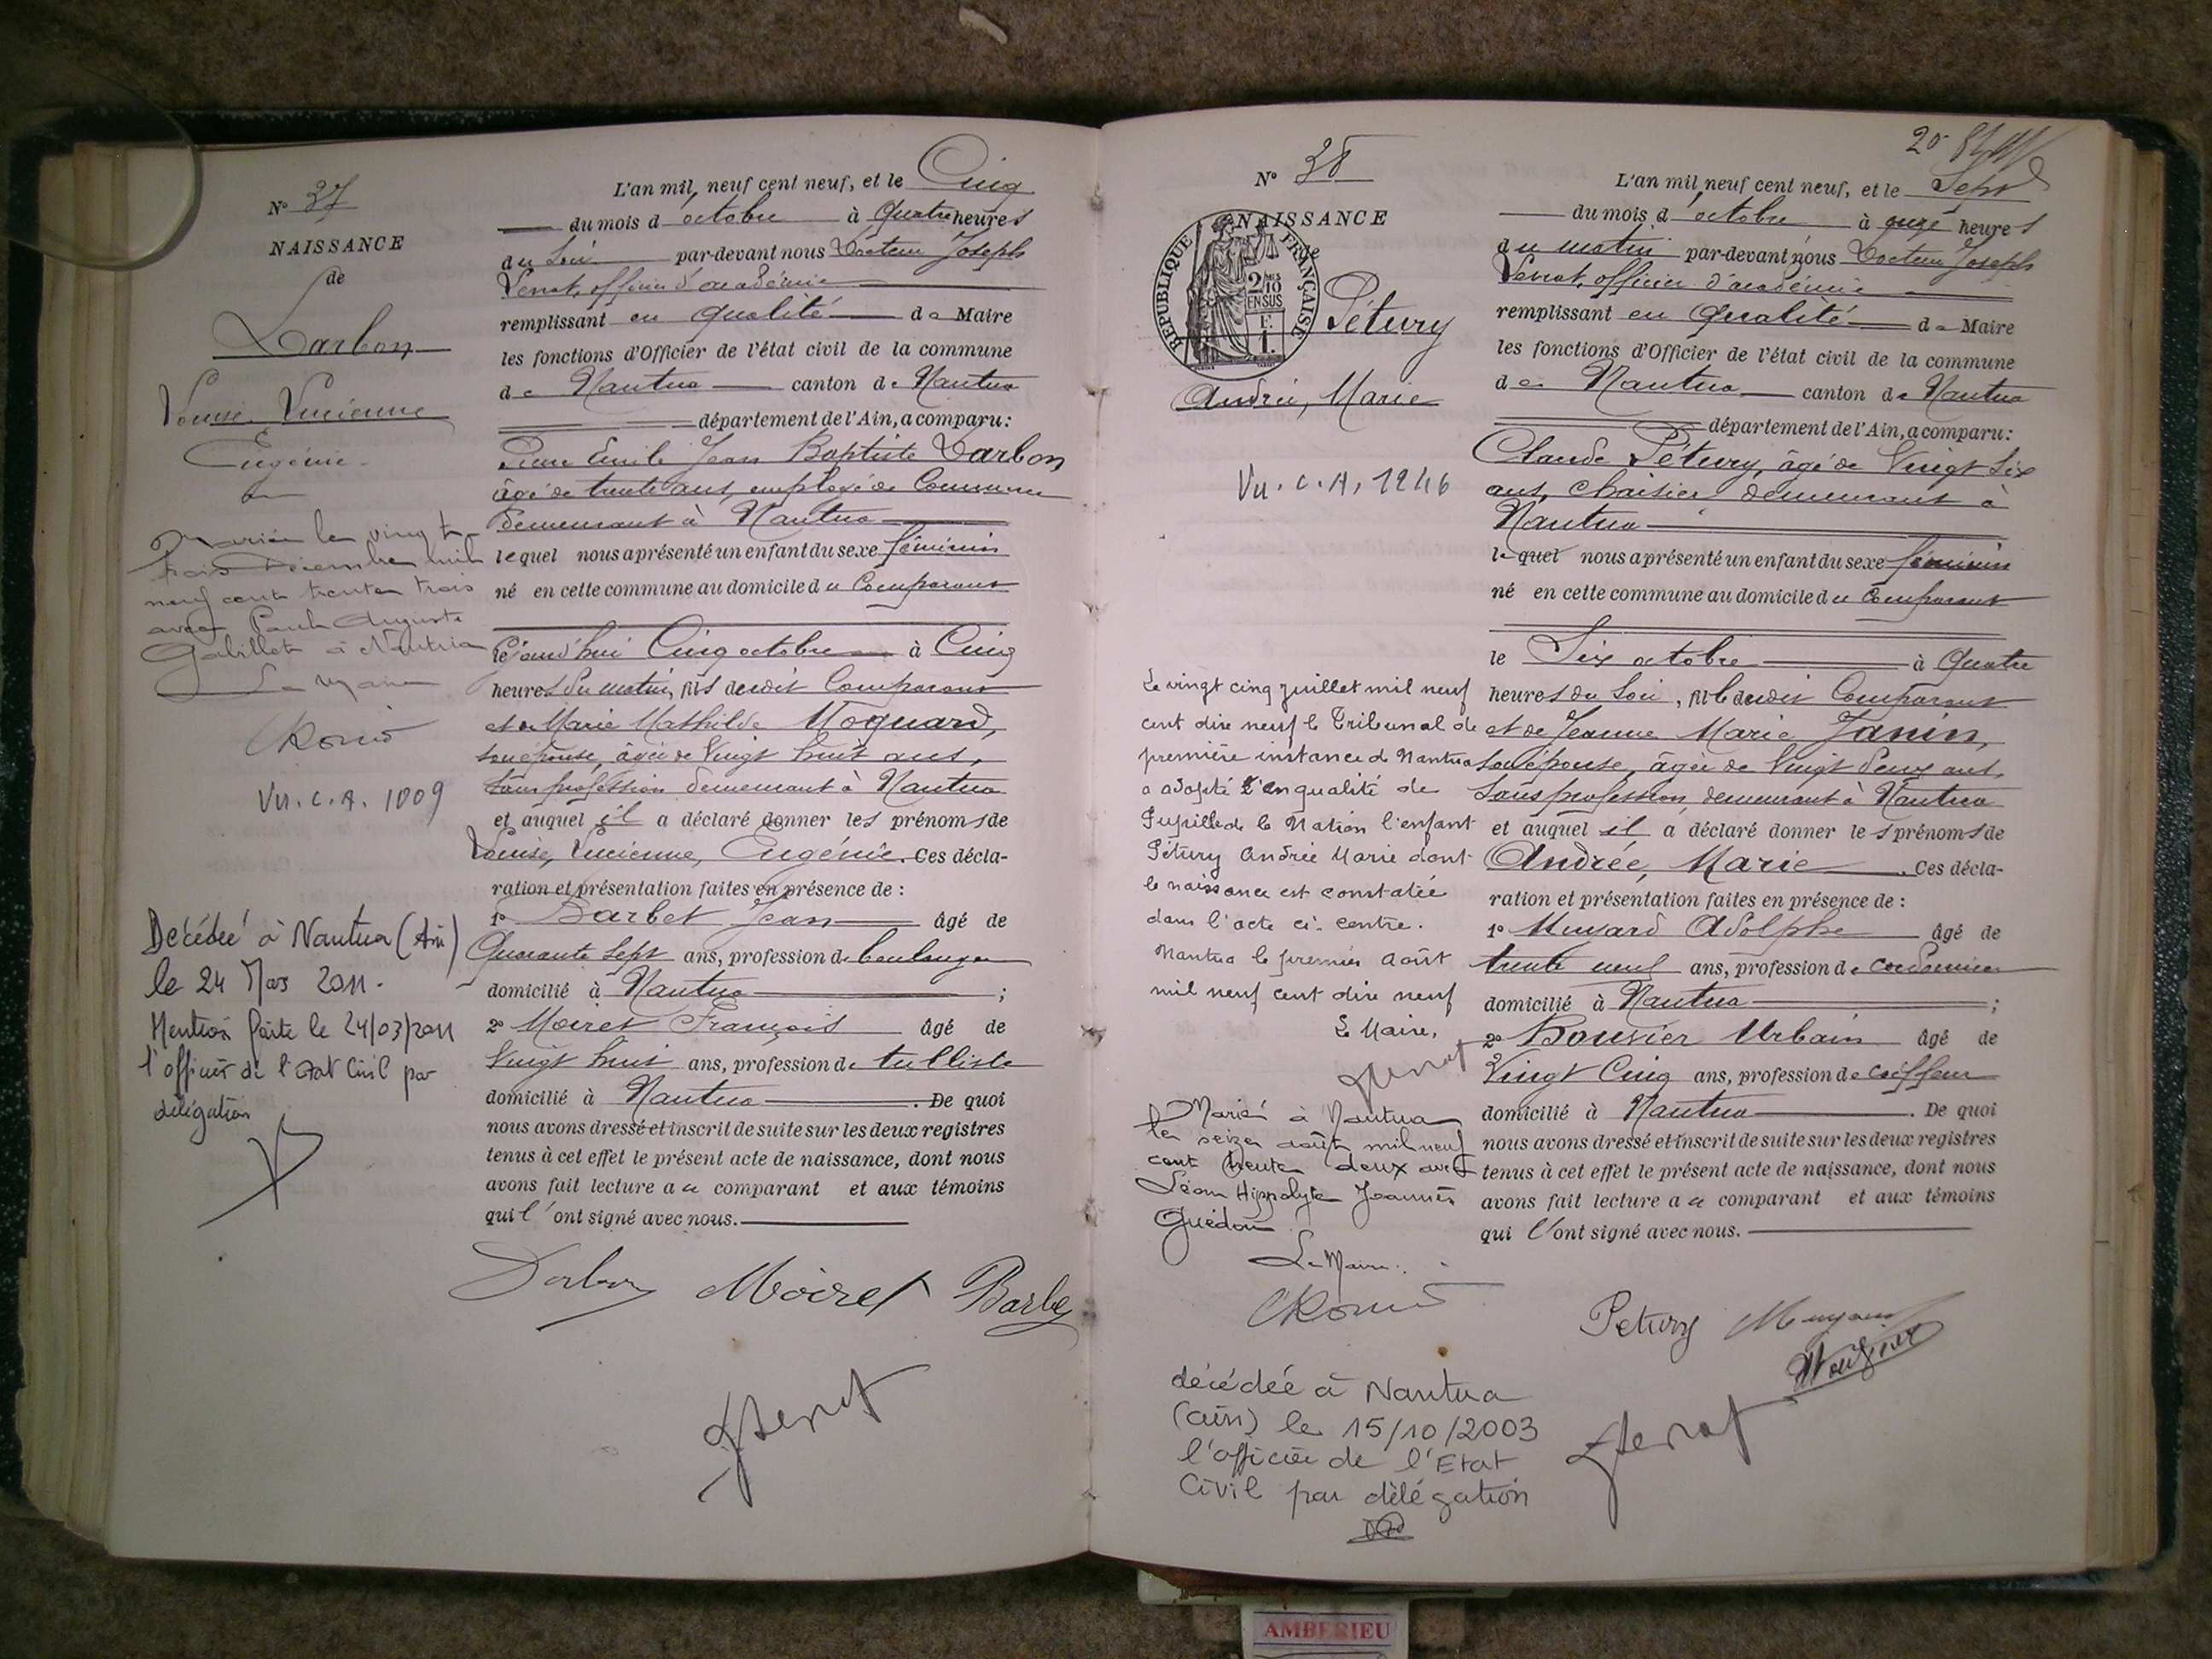 N° 37
NAISSANCE
de
Darbon
Louise Lucienne
Eugénie
Mariée le vingt
trois Décembre mil
neuf cent trente trois
avec Paul Auguste
Gabillet à Nantua
Le Maire
Vu. C. A. 1009
Décédée à Nantua (Ain)
le 24 Mars 2011.
Mention faite le 24/03/2011
l'officier de l'état civil par
délégation
L'an mil neuf cent neuf, et le Cinq
du mois d'octobre à quatre heures
du soir par-devant nous Docteur Joseph
officier d'académie
remplissant en qualité de Maire
les fonctions d'Officier de l'état civil de la commune
de Nantua canton de Nantua
département de l'Ain, a comparu:
Pierre Emile Jean Baptiste Darbon
âgé de trente ans, employé de Commerce
demeurant à Nantua
lequel nous a présenté un enfant du sexe féminin
né en cette commune au domicile du Comparant
le jourd'hui Cinq octobre à Cinq
heures du matin, fils dudit Comparant
et de Marie Mathilde Moquard,
son épouse, âgée de Vingt huit ans,
sans profession demeurant à Nantua
et auquel il a déclaré donner les prénoms de
Louise, Lucienne, Eugénie. Ces décla-
ration et présentation faites en présence de :
1° Barbet Jean âgé de
Quarante sept ans, profession de boulanger
domicilié à Nantua ;
2° Moiret François âgé de
Vingt huit ans, profession de tulliste
domicilié à Nantua . De quoi
nous avons dressé et inscrit de suite sur les deux registres
tenus à cet effet le présent acte de naissance, dont nous
avons fait lecture au comparant et aux témoins
qui l'ont signé avec nous.
Darbon Moiret Barbet
N° 38
NAISSANCE
de
RÉPUBLIQUE FRANÇAISE
2/10
EN SUS
Pétury
Andrée, Marie
Vu. C. A. 1246
Le vingt cinq juillet mil neuf
cent dix neuf le Tribunal de
première instance de Nantua
a adopté en qualité de
Pupille de la Nation l'enfant
Pétury Andrée Marie dont
la naissance est constatée
dans l'acte ci-contre.
Nantua le premier Août
mil neuf cent dix neuf
Le Maire,
Marié à Nantua
le seize août mil neuf
cent trente deux avec
Léon Hippolyte Joannès
Guédon
Le Maire.
décédée à Nantua
(ain) le 15/10/2003
l'officier de l'Etat
Civil par délégation
20
L'an mil neuf cent neuf, et le Sept
du mois d'octobre à onze heures
du matin par-devant nous Docteur Joseph
officier d'académie
remplissant en qualité de Maire
les fonctions d'Officier de l'état civil de la commune
de Nantua canton de Nantua
département de l'Ain, a comparu:
Claude Pétury, âgé de Vingt Six
ans, chaisier demeurant à
Nantua
lequel nous a présenté un enfant du sexe féminin
né en cette commune au domicile du Comparant
le Six octobre à Quatre
heures du soir, fille dudit Comparant
et de Jeanne Marie Janin,
son épouse, âgée de Vingt deux ans,
sans profession, demeurant à Nantua
et auquel il a déclaré donner les prénoms de
Andrée, Marie . Ces décla-
ration et présentation faites en présence de :
1° Adolphe âgé de
trente neuf ans, profession de cordonnier
domicilié à Nantua ;
2° Bouvier Urbain âgé de
Vingt Cinq ans, profession de coiffeur
domicilié à Nantua . De quoi
nous avons dressé et inscrit de suite sur les deux registres
tenus à cet effet le présent acte de naissance, dont nous
avons fait lecture au comparant et aux témoins
qui l'ont signé avec nous.
Petury
AMBERIEU